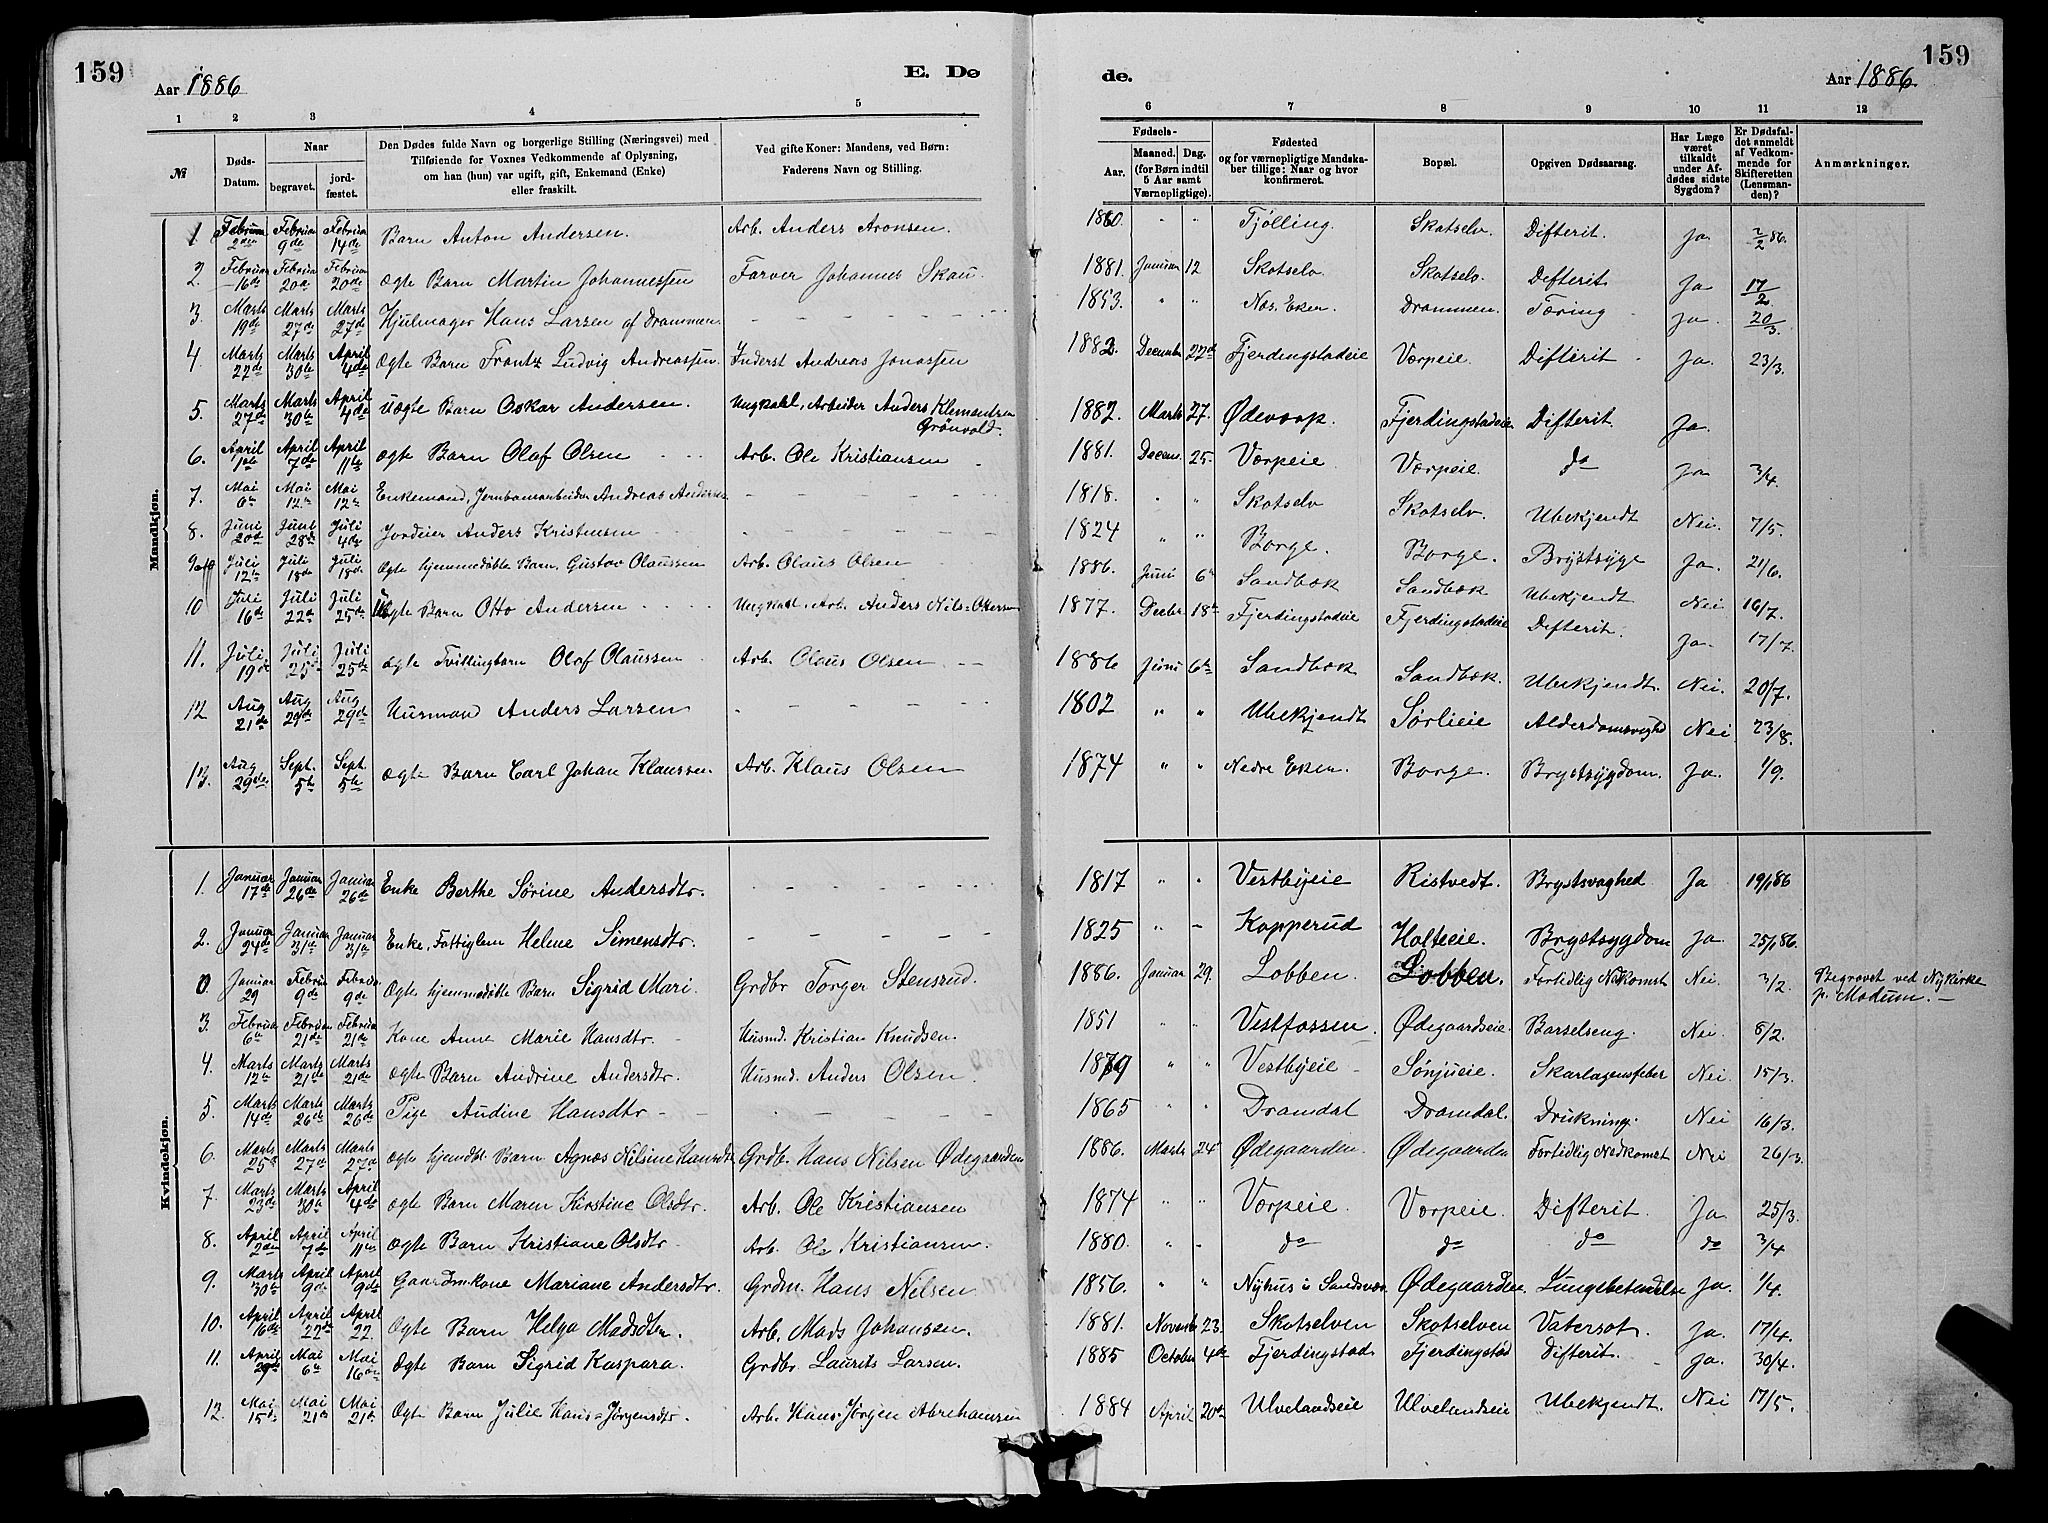 159
Aar 1886
E. Dø
de.
Aar 1886.
159
1 2 3 4 5 6 7 8 9 10 11 12
№
Døds-Datum.
Naar
begravet.
jord-fæstet.
Den Dødes fulde Navn og borgerlige Stilling (Næringsvei) med
Tilføiende for Voxnes Vedkommende af Oplysning,
om han (hun) var ugift, gift, Enkemand (Enke)
eller fraskilt.
Ved gifte Koner: Mandens, ved Børn:
Faderens Navn og Stilling.
Fødsels-
Aar.
Maaned. Dag.
(for Børn indtil
5 Aar samt
Værnepligtige).
Fødested
og for værnepligtige Mandska-
ber tillige: Naar og hvor
konfirmeret.
Bopæl.
Opgiven Dødsaarsag.
Har Læge
været
tilkaldt
under Af-
dødes sidste
Sygdom?
Er Dødsfal-
det anmeldt
af Vedkom-
mende for
Skifteretten
(Lensman-
den)?
Anmærkninger.
Mandkjøn.
1. Februar 2den Februar 9de Februar 14de Barn Anton Andersen. Arb. Anders Aronsen. 1860. " " Tjølling. Skotselv. Difterit. Ja 2/2 86.
2. Februar 16de Februar 20de Februar 20de Ægte Barn Martin Johannessen Farver Johannes Skau. 1881. Januar 12 Skotselv. Skotselv. Difterit Ja 17/2
3. Marts 19de Marts 27de Marts 27de Hjulmager Hans Larsen af Drammen. - - - 1853. " " Nes. Eker. Drammen. Tæring - Ja. 20/3.
4. Marts 22de Marts 30te April 4de Ægte Barn Frantz Ludvig Andreassen. Inderst Andreas Jonassen 1882. Decembr 22de Fjerdingstadeie Værpeie. Difterit - Ja. 23/3.
5. Marts 27de Marts 30te April 4de Uægte Barn Oskar Andersen. Ungkarl, Arbeider Anders Klemmetsen Grønvold. 1882. Marts 27. Fjerdingstadeie Difterit Ja.
6. April 1ste April 7de April 11te Ægte Barn Olaf Olsen - - - Arb. Ole Kristiansen 1881. Decem. 25. Værpeie. Værpeie. do Ja 3/4.
7. Mai 6te Mai 12te Mai 12te Enkemand, Jernbanearbeider Andreas Andersen - - - 1818. " " Skotselv Skotselv. Ubekjendt Nei. 7/5.
8. Juni 20de Juni 28de Juli 4de Jordeier Anders Kristensen - - - 1824 " " Borge. Borge. Brystsyge Ja. 21/6.
9. Juli 12te Juli 18de Juli 18de Ægte hjemmedøbte Barn, Gustav Olaussen Arb. Olaus Olsen 1886. Juni 6te Sandbæk Sandbæk Ubekjendt Nei 16/7.
10 Juli 16de Juli 22de Juli 25de Uægte Barn Otto Andersen - - - Ungkarl. Arb. Anders Nils=Olsersen 1877. Decbr 18de Fjerdingstadeie Fjerdingstadeie Difterit. Ja. 17/7.
11. Juli 19de Juli 25de Juli 25de Ægte Tvillingbarn Olaf Olaussen Arb. Olaus Olsen - - 1886 Juni 6te Sandbæk Sandbæk. Ubekjendt. Nei. 20/7.
12 Aug 21de Aug 29de Aug 29de Husmand Anders Larsen - - - 1802 " " Ubekjendt Sørlieie Alderdomsvaghed Nei 23/8.
13. Aug 29de Sept. 5te Sept. 5te Ægte Barn Carl Johan Klaussen. Arb. Klaus Olsen 1874 " " Nedre Eker. Borge. Brystsygdom. Ja. 1/9.
Kvindekjøn.
1. Januar 17de Januar 26de Januar 26de Enke Berthe Sørine Andersdtr. - - - 1817 " " Vestbyeie Ristvedt. Brystsvaghed Ja 19/1 86
2. Januar 24de Januar 31te Januar 31te Enke, Fattiglem Helene Simensdtr. - - - 1825 " - Kopperud Holteie. Brystsygdom Ja 25/1 86.
0. Januar 29 Februar 9de Februar 9de Ægte hjemmedøbte Barn Sigrid Mari. Grdbr Torger Stensrud. 1886. Januar 29. Lobben. Lobben. Fortidlig Nedkomst Nei. 3/2. Begravet ved Nykirke p. Modum. -
3. Februar 6te Februar 21de Februar 21de Kone Anne Marie Hansdtr. - Husmd. Kristian Knudsen. 1851 " " Vestfossen. Ødegaardseie. Barselseng. Nei. 8/2.
4. Marts 12te Marts 21de Marts 21de Ægte Barn Andrine Andersdtr. Husmd. Anders Olsen. 1879 " " Vestbyeie - Sønjueie. Skarlagensfeber Nei. 15/3.
5. Marts 14de Marts 26de Marts 26de Pige Audine Hansdtr - - - 1865 " " Dramdal Dramdal. Drukning. Nei 16/3.
6. Marts 25de Marts 27de Marts 27de Ægte hjemdbt. Barn Agnes Nilsine Hansdtr. Grdb. Hans Nilsen Ødegaarden 1886. Marts 24de Ødegaarden. Ødegaarden Fortidlig Nedkomst Nei 26/3.
7. Marts 23de Marts 30te April 4de Ægte Barn Maren Kirstine Olsdtr. Arb. Ole Kristiansen 1874 " " Værpeie. Værpeie. Difterit. Ja 25/3.
8. April 2den April 7de April 11te Ægte Barn Kristiane Olsdtr Arb. Ole Kristiansen. 1880. " " do do do do 3/4
9. Marts 30te April 9de April 9de Gaardmkone Mariane Andersdtr. Grdm. Hans Nilsen 1856. " " Nyhus i Sandsvær. Ødegaarden Lungebetændelse Ja. 1/4.
10. April 16de April 22de April 22. Ægte Barn Helga Madsdtr. Arb. Mads Johansen. 1881. Novembr 23. Skotselven Skotselven Vatersot. Ja. 17/4.
11. April 29de Mai 6te Mai 16de Ægte Barn Sigrid Kaspara. Grdbr. Laurits Larsen. 1885 October 4de Fjerdingstad Fjerdingstad Difterit. - Ja. 30/4.
12. Mai 15de Mai 21de Mai 21de Ægte Barn Julie Hans=Jørgensdtr. Arb. Hans=Jørgen Abrahamsen 1884 April 20de Ulvelandseie Ulvelandseie Ubekjendt. Nei 17/5.